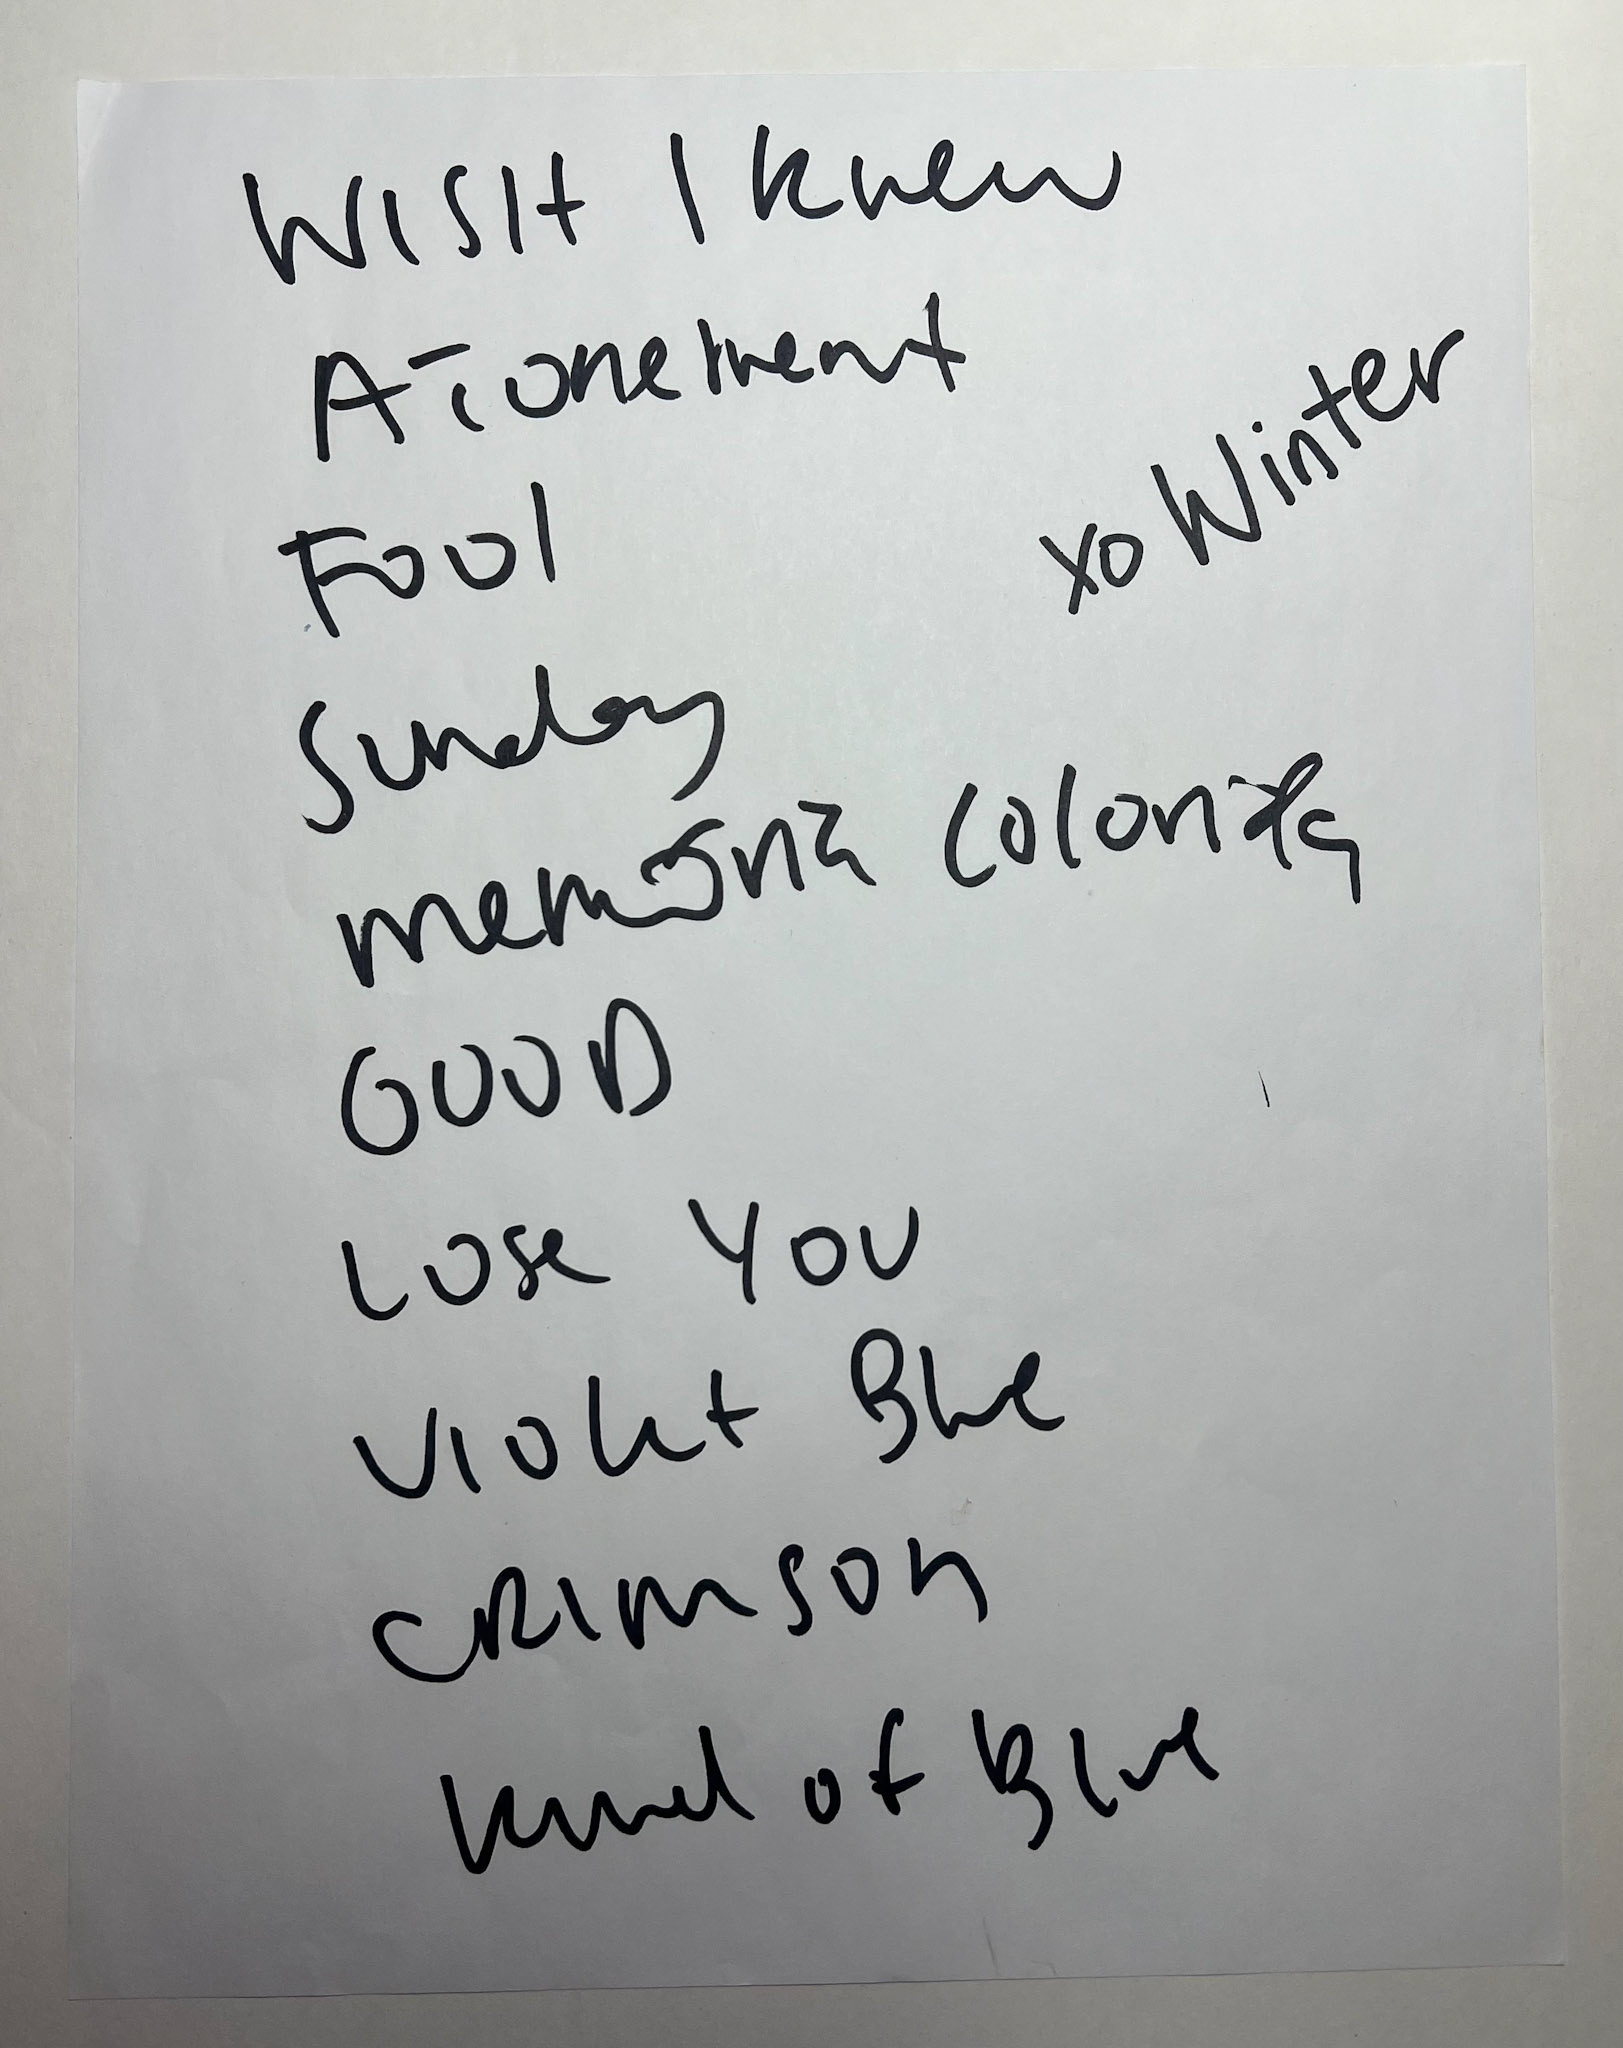 WISH I knew
Atonement
xo Winter
Fool
Sunday
memoria colorida
GOOD
Lose You
Violet Blue
CRIMSON
Kind of Blue